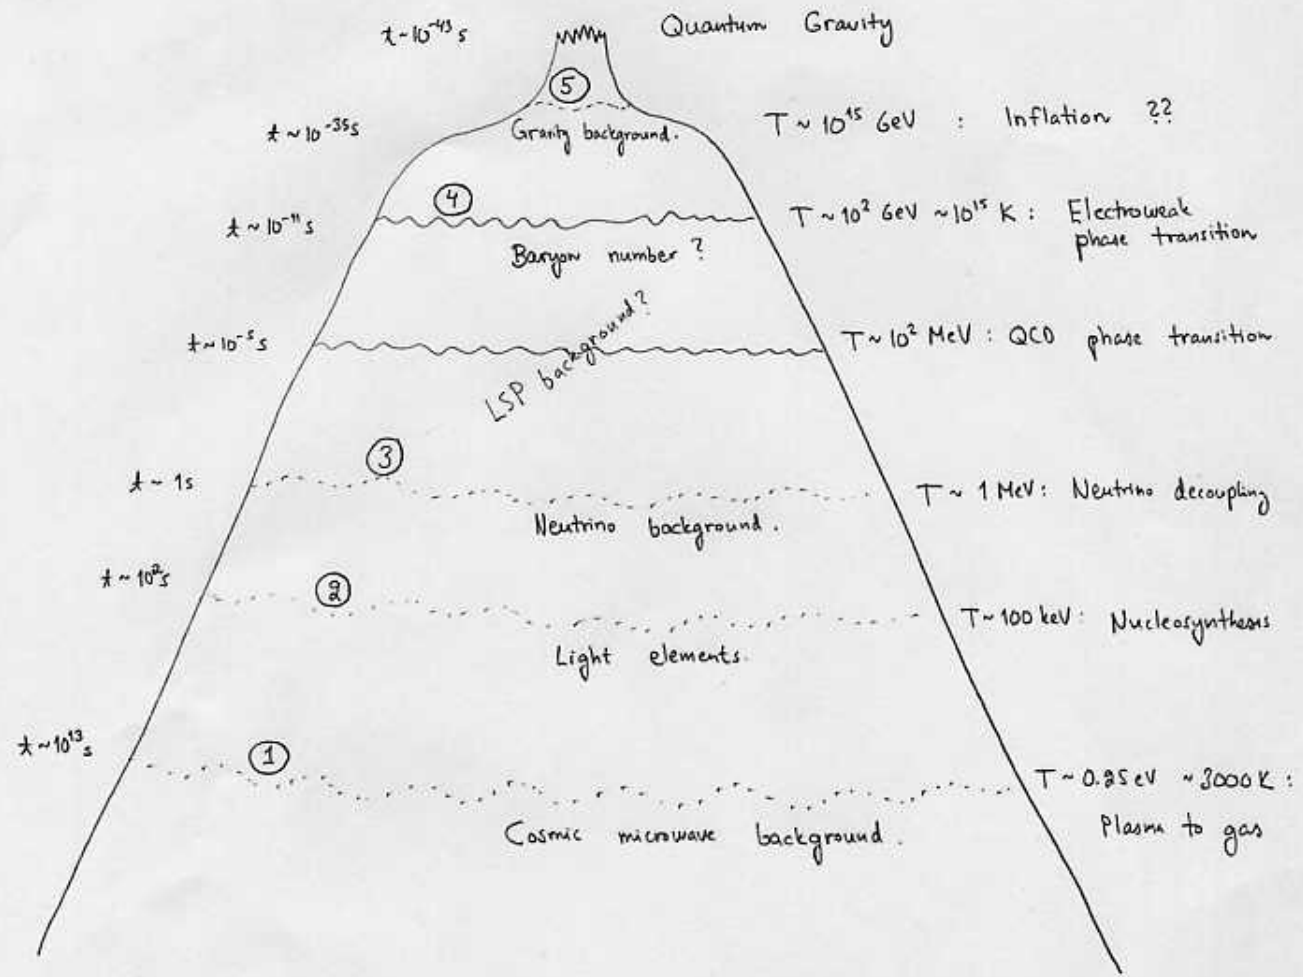 t~10⁻⁴³s Quantum Gravity
⑤
t~10⁻³⁵s Gravity background. T~10¹⁵ GeV : Inflation ??
④
t~10⁻¹¹s T~10² GeV ~10¹⁵ K : Electroweak
phase transition
Baryon number ?
t~10⁻⁵s T~10² MeV : QCD phase transition
LSP background?
③
t~1s T~1 MeV: Neutrino decoupling
Neutrino background.
t~10²s ②
T~100 keV: Nucleosynthesis
Light elements.
t~10¹³s ①
T~0.25eV ~3000K :
Plasma to gas
Cosmic microwave background.